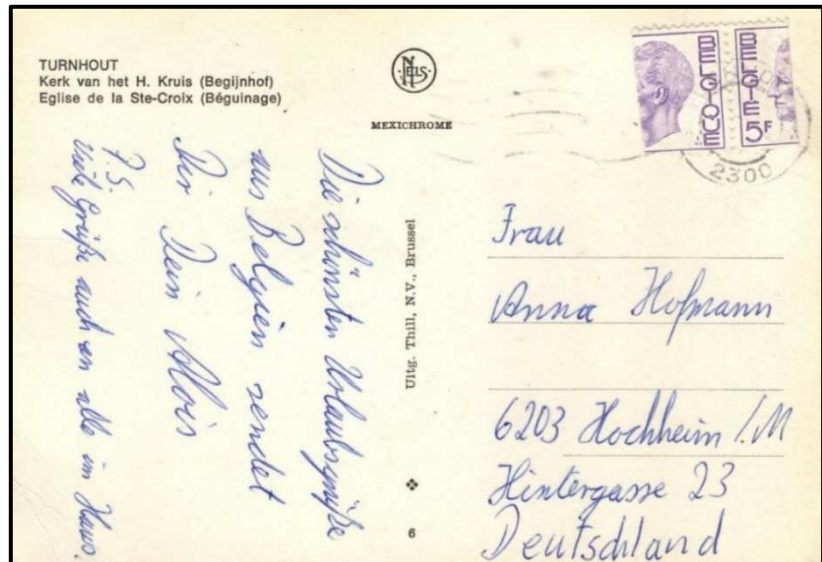 TURNHOUT
Kerk van het H. Kruis (Begijnhof)
Eglise de la Ste-Croix (Béguinage)
NELS
MEXICHROME
BELGIQUE
BELGIE 5F
2300
Die schönsten Urlaubsgrüße
aus Belgien sendet
Dir Dein Alois
P.S.
Viele Grüße auch an alle im Haus.
Uitg. Thill, N.V., Brussel
6
Frau
Anna Hofmann
6203 Hochheim /M
Hintergasse 23
Deutschland